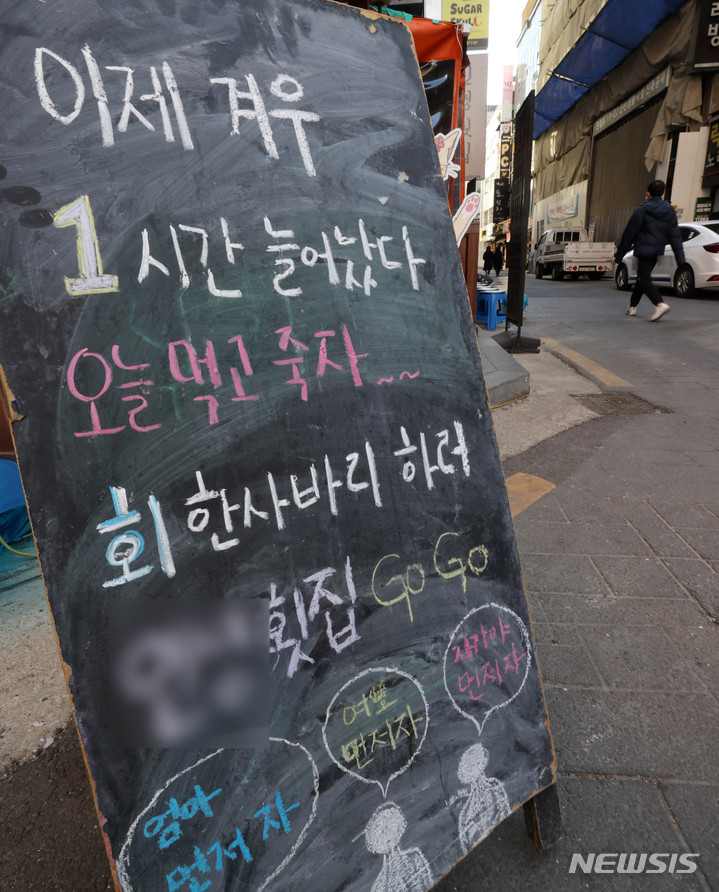 이제 겨우
1시간 늘어났다
오늘 먹고 죽자~~
회 한사바리 하러
횟집 GoGo
자기야
먼저자
여보
먼저자
엄마
먼저 자
SUGAR
SKULL
PC
NEWSIS